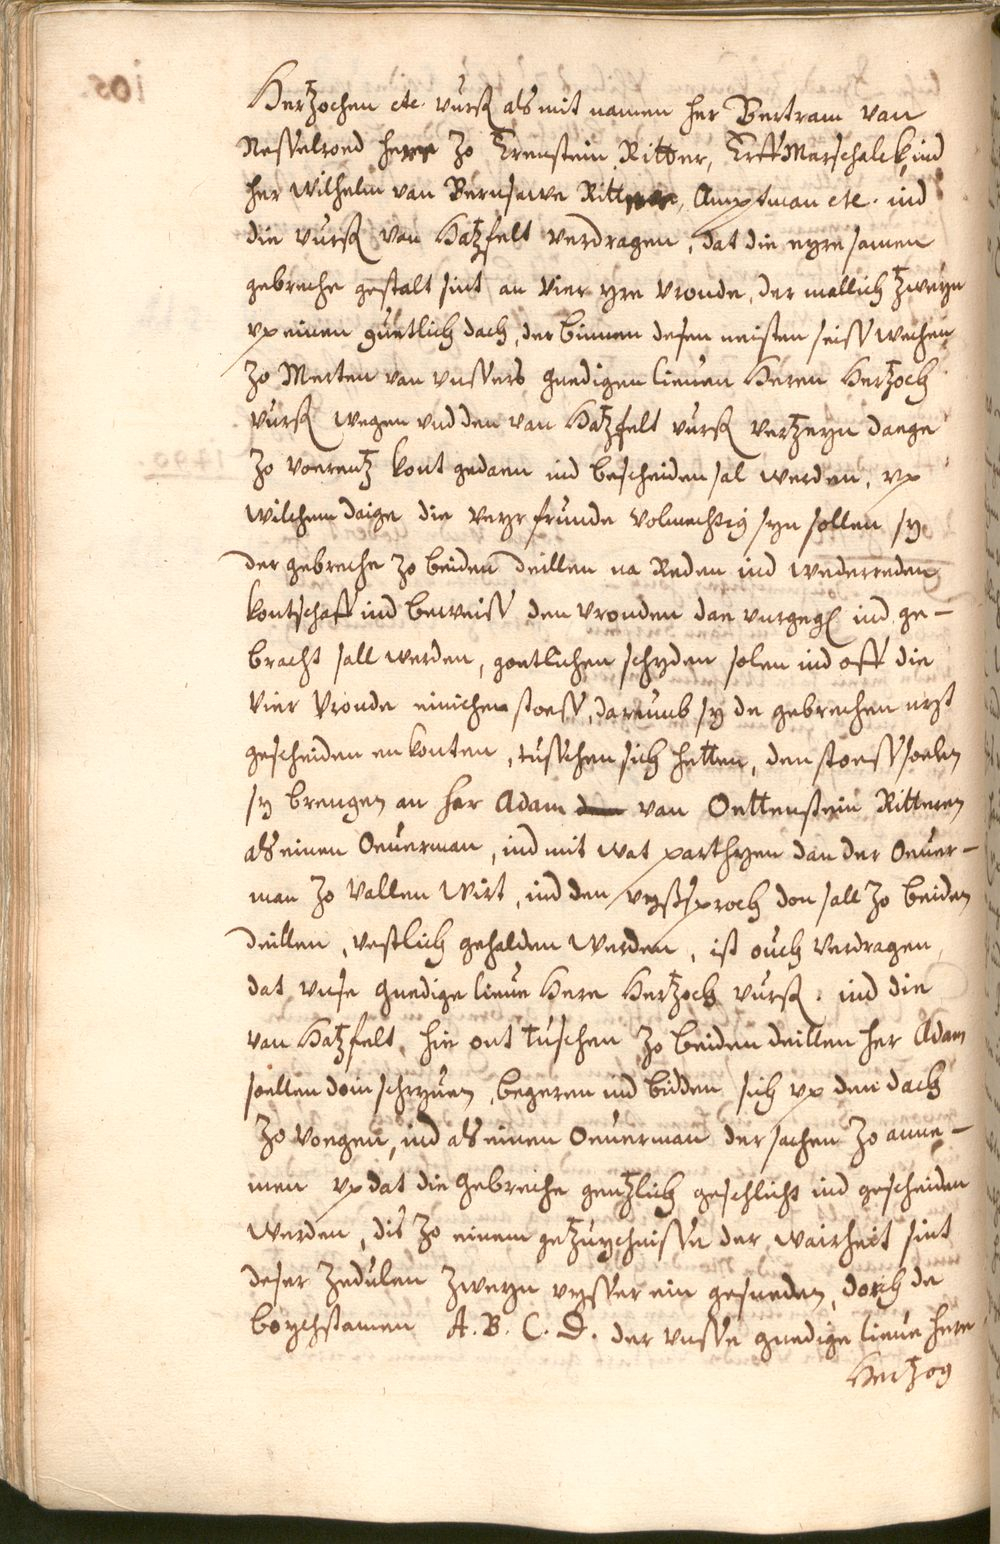 Hertzochen etc. vurß als mit namen her Bertram van
Nesselroed herre zo Erenstein Ritter, Erffmarschalck, ind
her Wilhelm van Bernsawe Ritter, Amptman etc. ind
die vurß van Hatzfelt verdragen, dat die eyresamen
gebreche gestalt sint an vier yre vronde, der mallich zweyn
vp einen guetlich dach, der binnen desen neisten seiss wechen
zo Merten van vnssers gnedigen lieuen Heren Hertzoch
vurß wegen vnd den van Hatzfelt vurß vertzeyn daege
zo voerentz kont gedaen ind bescheiden sal werden, vp
wilchem daige die veyr frunde volmechtig syn sollen sy
der gebreche zo beiden deillen na Reden ind wederreden
kontschaff ind beweiss den vronden dae vurgegl ind ge-
bracht sall werden, goetlichen schyden solen ind off die
vier vronde einichen stoess, darumb sy de gebrechen nyt
gescheiden en konten, tusschen sich hetten, den stoess soelen
sy brengen an her Adam van Oettenstein Ritteren
als einen Oeuerman, ind mit wat parthyen dan der Oeuer-
man zo vallen wirt, ind den vyßsproch don sall zo beiden
deillen, vestlich gehalden werden, ist ouch verdragen
dat vnse gnedige lieue Here Hertzoch vurß. ind die
van Hatzfelt, hie ont tuschen zo beiden deillen her Adam
soellen doin schryuen, begeren ind bidden sich vp den dach
zo voegen, ind als einen Oeuerman der sachen zo anne-
men vp dat die gebreche gentzlich geschlicht ind gescheiden
werden, dis zo einem getzuychnisse der wairheit sint
deser zedulen zweyn vysser ein gesneden, dorch de
boychstamen A. B. C. D. der vnsse gnedige lieue here
Hertzog